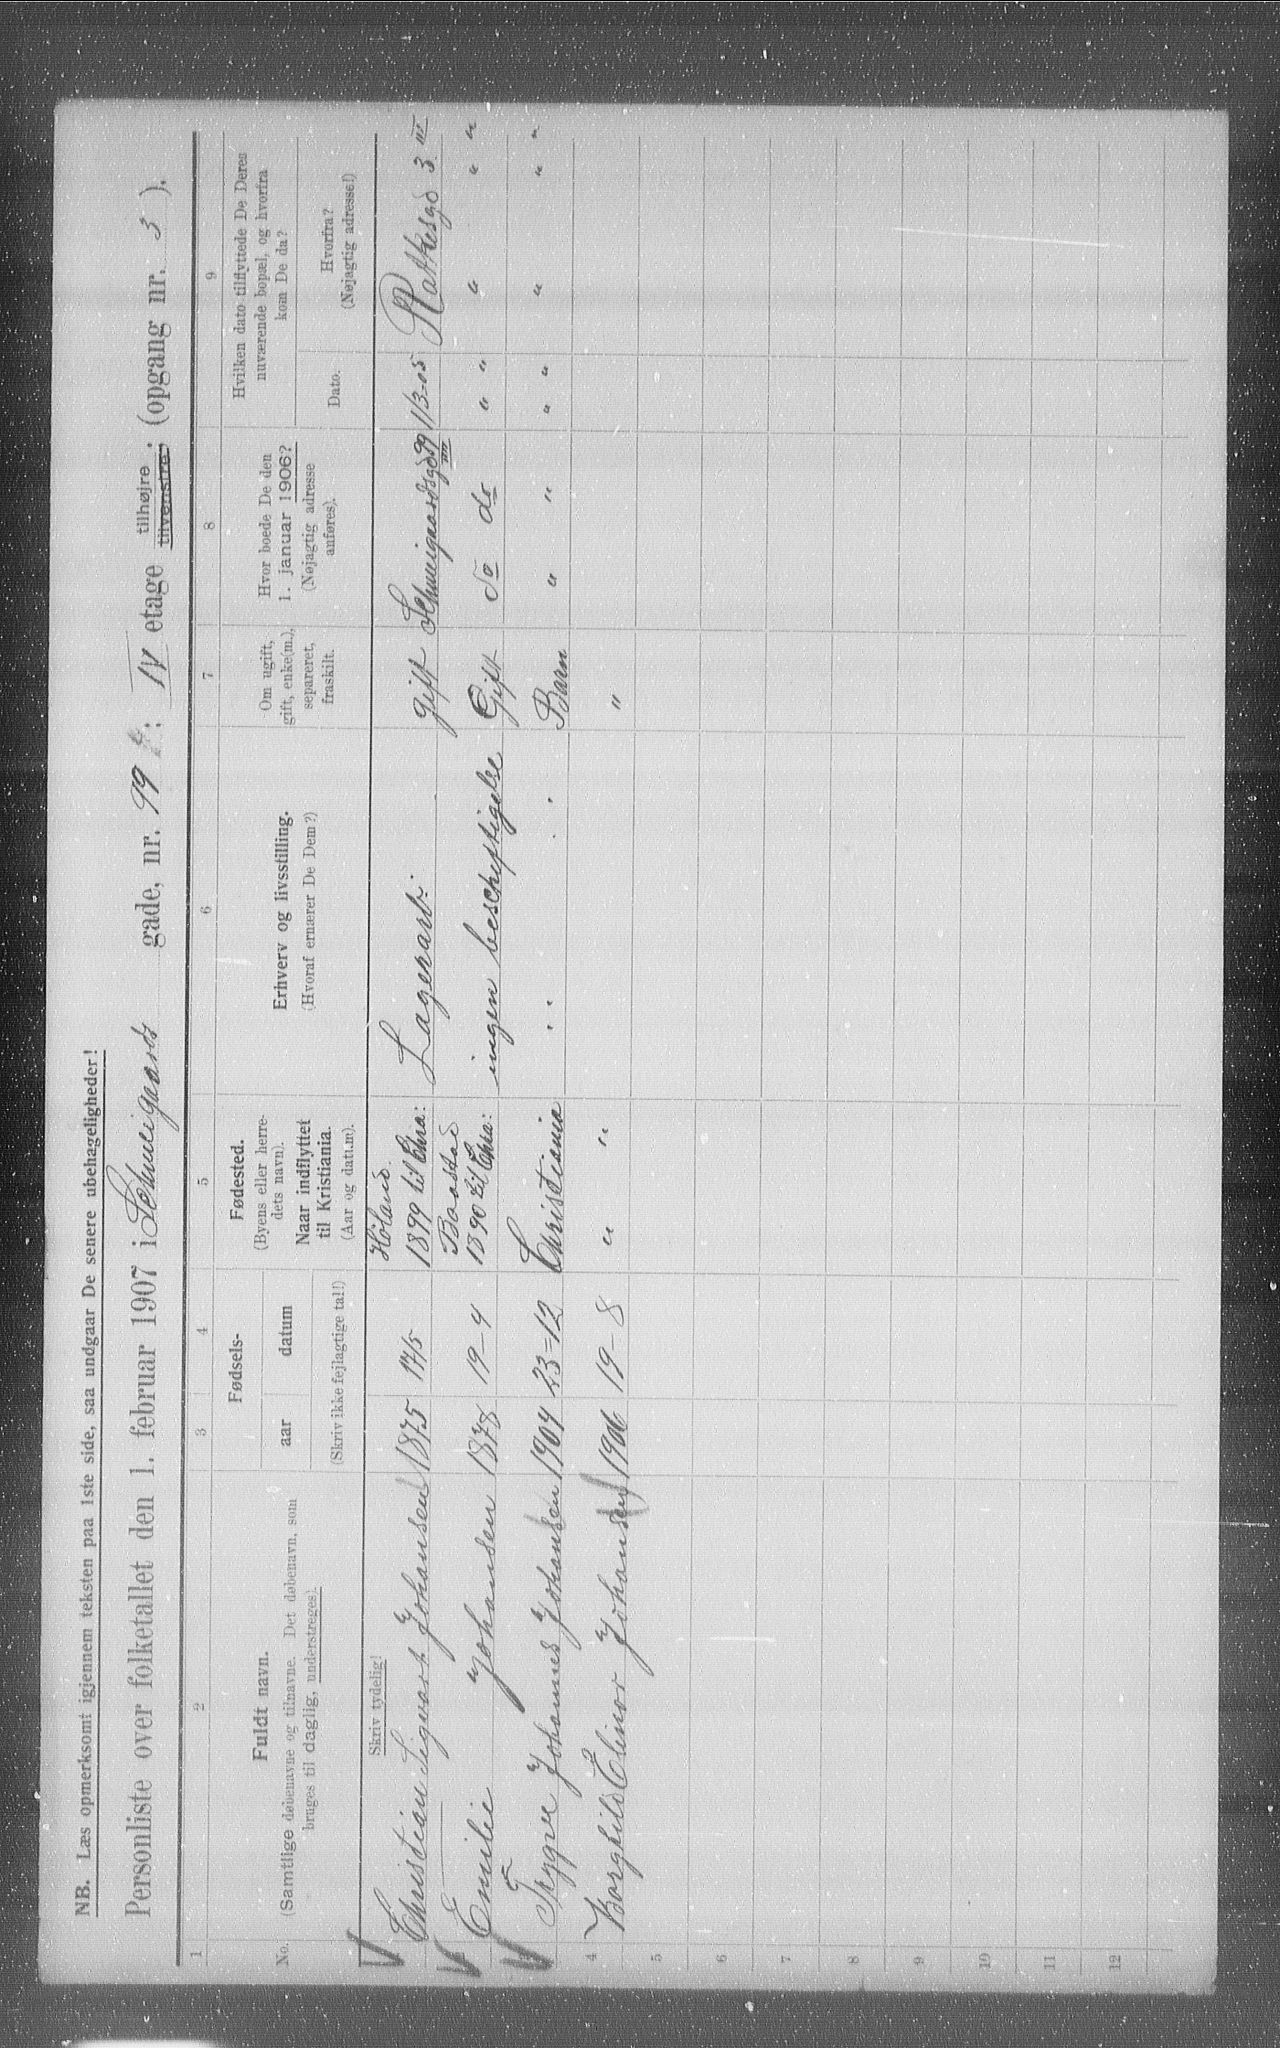 NB. Læs opmerksomt igjennem teksten paa 1ste side, saa undgaar De senere ubehageligheder!
Personliste over folketallet den 1. februar 1907 i Schweigaards gade, nr. 99 ; IV etage tilhøjre tilvenstre, (opgang nr. 3 ).
1 2 3 4 5 6 7 8 9
No.
Fuldt navn.
(Samtlige døbenavne og tilnavne. Det døbenavn, som
bruges til daglig, understreges).
Skriv tydelig!
Fødsels-
aar datum
(Skriv ikke fejlagtige tal!)
Fødested.
(Byens eller herre-
dets navn).
Naar indflyttet
til Kristiania.
(Aar og datum).
Erhverv og livsstilling.
(Hvoraf ernærer De Dem?)
Om ugift,
gift, enke(m.),
separeret,
fraskilt.
Hvor boede De den
1. januar 1906?
(Nøjagtig adresse
anføres).
Hvilken dato tilflyttede De Deres
nuværende bopæl, og hvorfra
kom De da?
Dato.
Hvorfra?
(Nøjagtig adresse!)
Christian Sigvart Johansen 1875 17/5 Höland 1899 til Chra: Lagerarb: gift Schweigaardsgd 99 III 1/3-05 Rathkesgd 3 III
Emilie Johansen 1878 19-4 Baastad 1890 til Chra: ingen beschæftigelse Gift do do " " " " "
Trygve Johannes Johansen 1904 23-12 Christiania " " Barn " " " " " " "
4 Borghild Elinor Johansen 1906 19-8 " " "
5
6
7
8
9
10
11
12